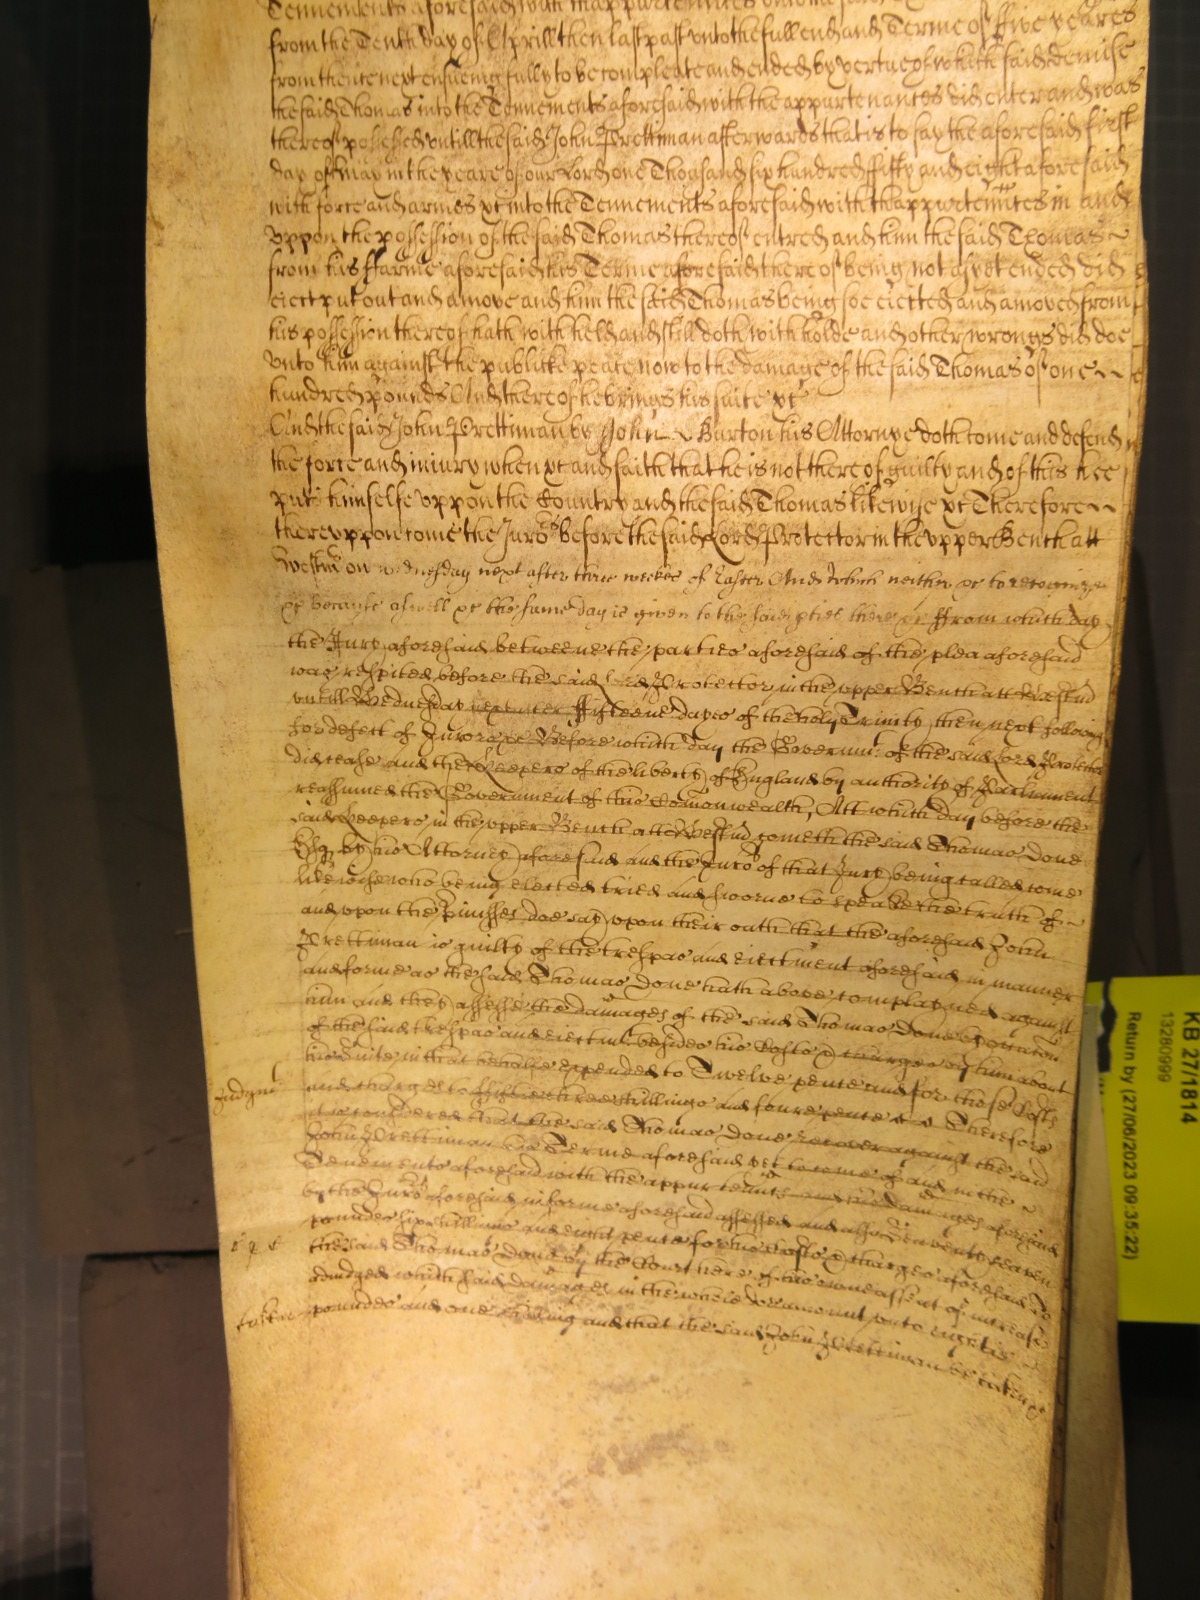 Tennements aforesaid with thappurtennces
from the Tenth day of Aprill then last past unto the full end and Terme of five yeares
from thence next ensueing fully to be compleate and ended by vertue of which said demise
the said Thomas into the Tennements aforesaid with the appurtenances did enter and was
thereof possessed untill the said John Prettiman afterwards that is to say the aforesaid first
day of may in the yeare of our Lord one Thousand six hundred fifty and eight aforesaid
with force and armes &c into the Tennements aforesaid with thappurtennces in and
uppon the possession of the said Thomas thereof entred and him the said Thomas
from his ffarme aforesaid his Terme aforesaid thereof being not as yet ended did
eiect put out and amove and him the said Thomas being soe eiected and amoved from
his possession thereof hath withheld and still doth withholde and other wrongs did doe
unto him against the publicke peace now to the damage of the said Thomas of one
hundred pounds And thereof he brings his suite &c
And the said John Prettiman by John Burton his Attornye doth come and defend
the force and iniury when &c and saith that he is not thereof guilty and of this hee
puts himselfe uppon the Country and the said Thomas likewise &c Therefore
thereuppon come the Jurors before the said Lord Protector in the upper Bench att
Westmr on wednesday next after three weekes of Easter And which neither &c to recognize
&c because aswell &c the same day is given to the said pties there &c ffrom which day
the Jury aforesaid betweene the parties aforesaid of the plea aforesaid
was respited before the said Lord Protector in the upper Bench att Westmr
untill Wednesday next after ffifteene dayes of the holy Trinity then next following
for defect of Jurors &c Before which day the Governmt of the said Lord Protector
did cease and the Keepers of the liberty of England by authority of Parliament
reassumed the Government of this Comonwealth, Att which day before the
said Keepers in the upper Bench att Westmr cometh the said Thomas Done
Esq by his Attorney aforesaid and the Jurors of that Jury being called come
likewise who being elected tried and sworne to speake the truth of
and upon the pmisses doe say upon their oath that the aforesaid John
Prettiman is guilty of the trespas and eiectment aforesaid in manner
and forme as the said Thomas Done hath above complayned against
him and they assesse the damages of the said Thomas Done by occasion
of the said trespas and eiectmt besides his Costs & charges by him about
his suite in that behalfe expended to Twelve pence and for those Costs
Judgmt and charges to ffiftie three shillings and foure pence Therefore
it is considered that the said Thomas Done recover against the said
John Prettiman his Terme aforesaid yet to come of and in the
Tenements aforesaid with the appurtenncs and his damages aforesaid
by the Jurors aforesaid in forme aforesaid assessed and alsoe seaven
pounds six shillings and eight pence for his costs & charges aforesaid to
the said Thomas Done by the Court here of his owne assent of increase
adiudged which said damages in the whole doe amount unto
pounds and one shilling and that the said John Prettiman be taken &c
KB 27/1814
13280999
Return by (27/06/2023 09:35:22)